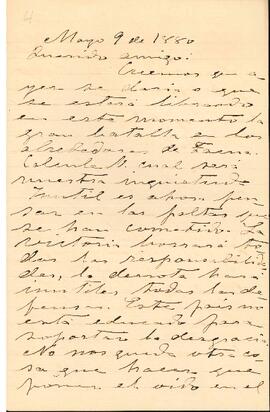 4
Mayo 9 de 1880
Querido amigo:
Creemos que a-
yer se daria o que
se estará librando
en este momento la
gran batalla en los
alrededores de Tacna.
Calcule U. cual será
nuestra inquietud.
Inutil es ahora pen-
sar en las faltas que
se han cometido. La
victoria borrará to-
das las responsabilida-
des, la derrota hará
inutiles todas las de-
fensas. Este pais no
está educado para
soportar la desgracia.
No nos queda otra co-
sa que hacer, que
poner el oido en el